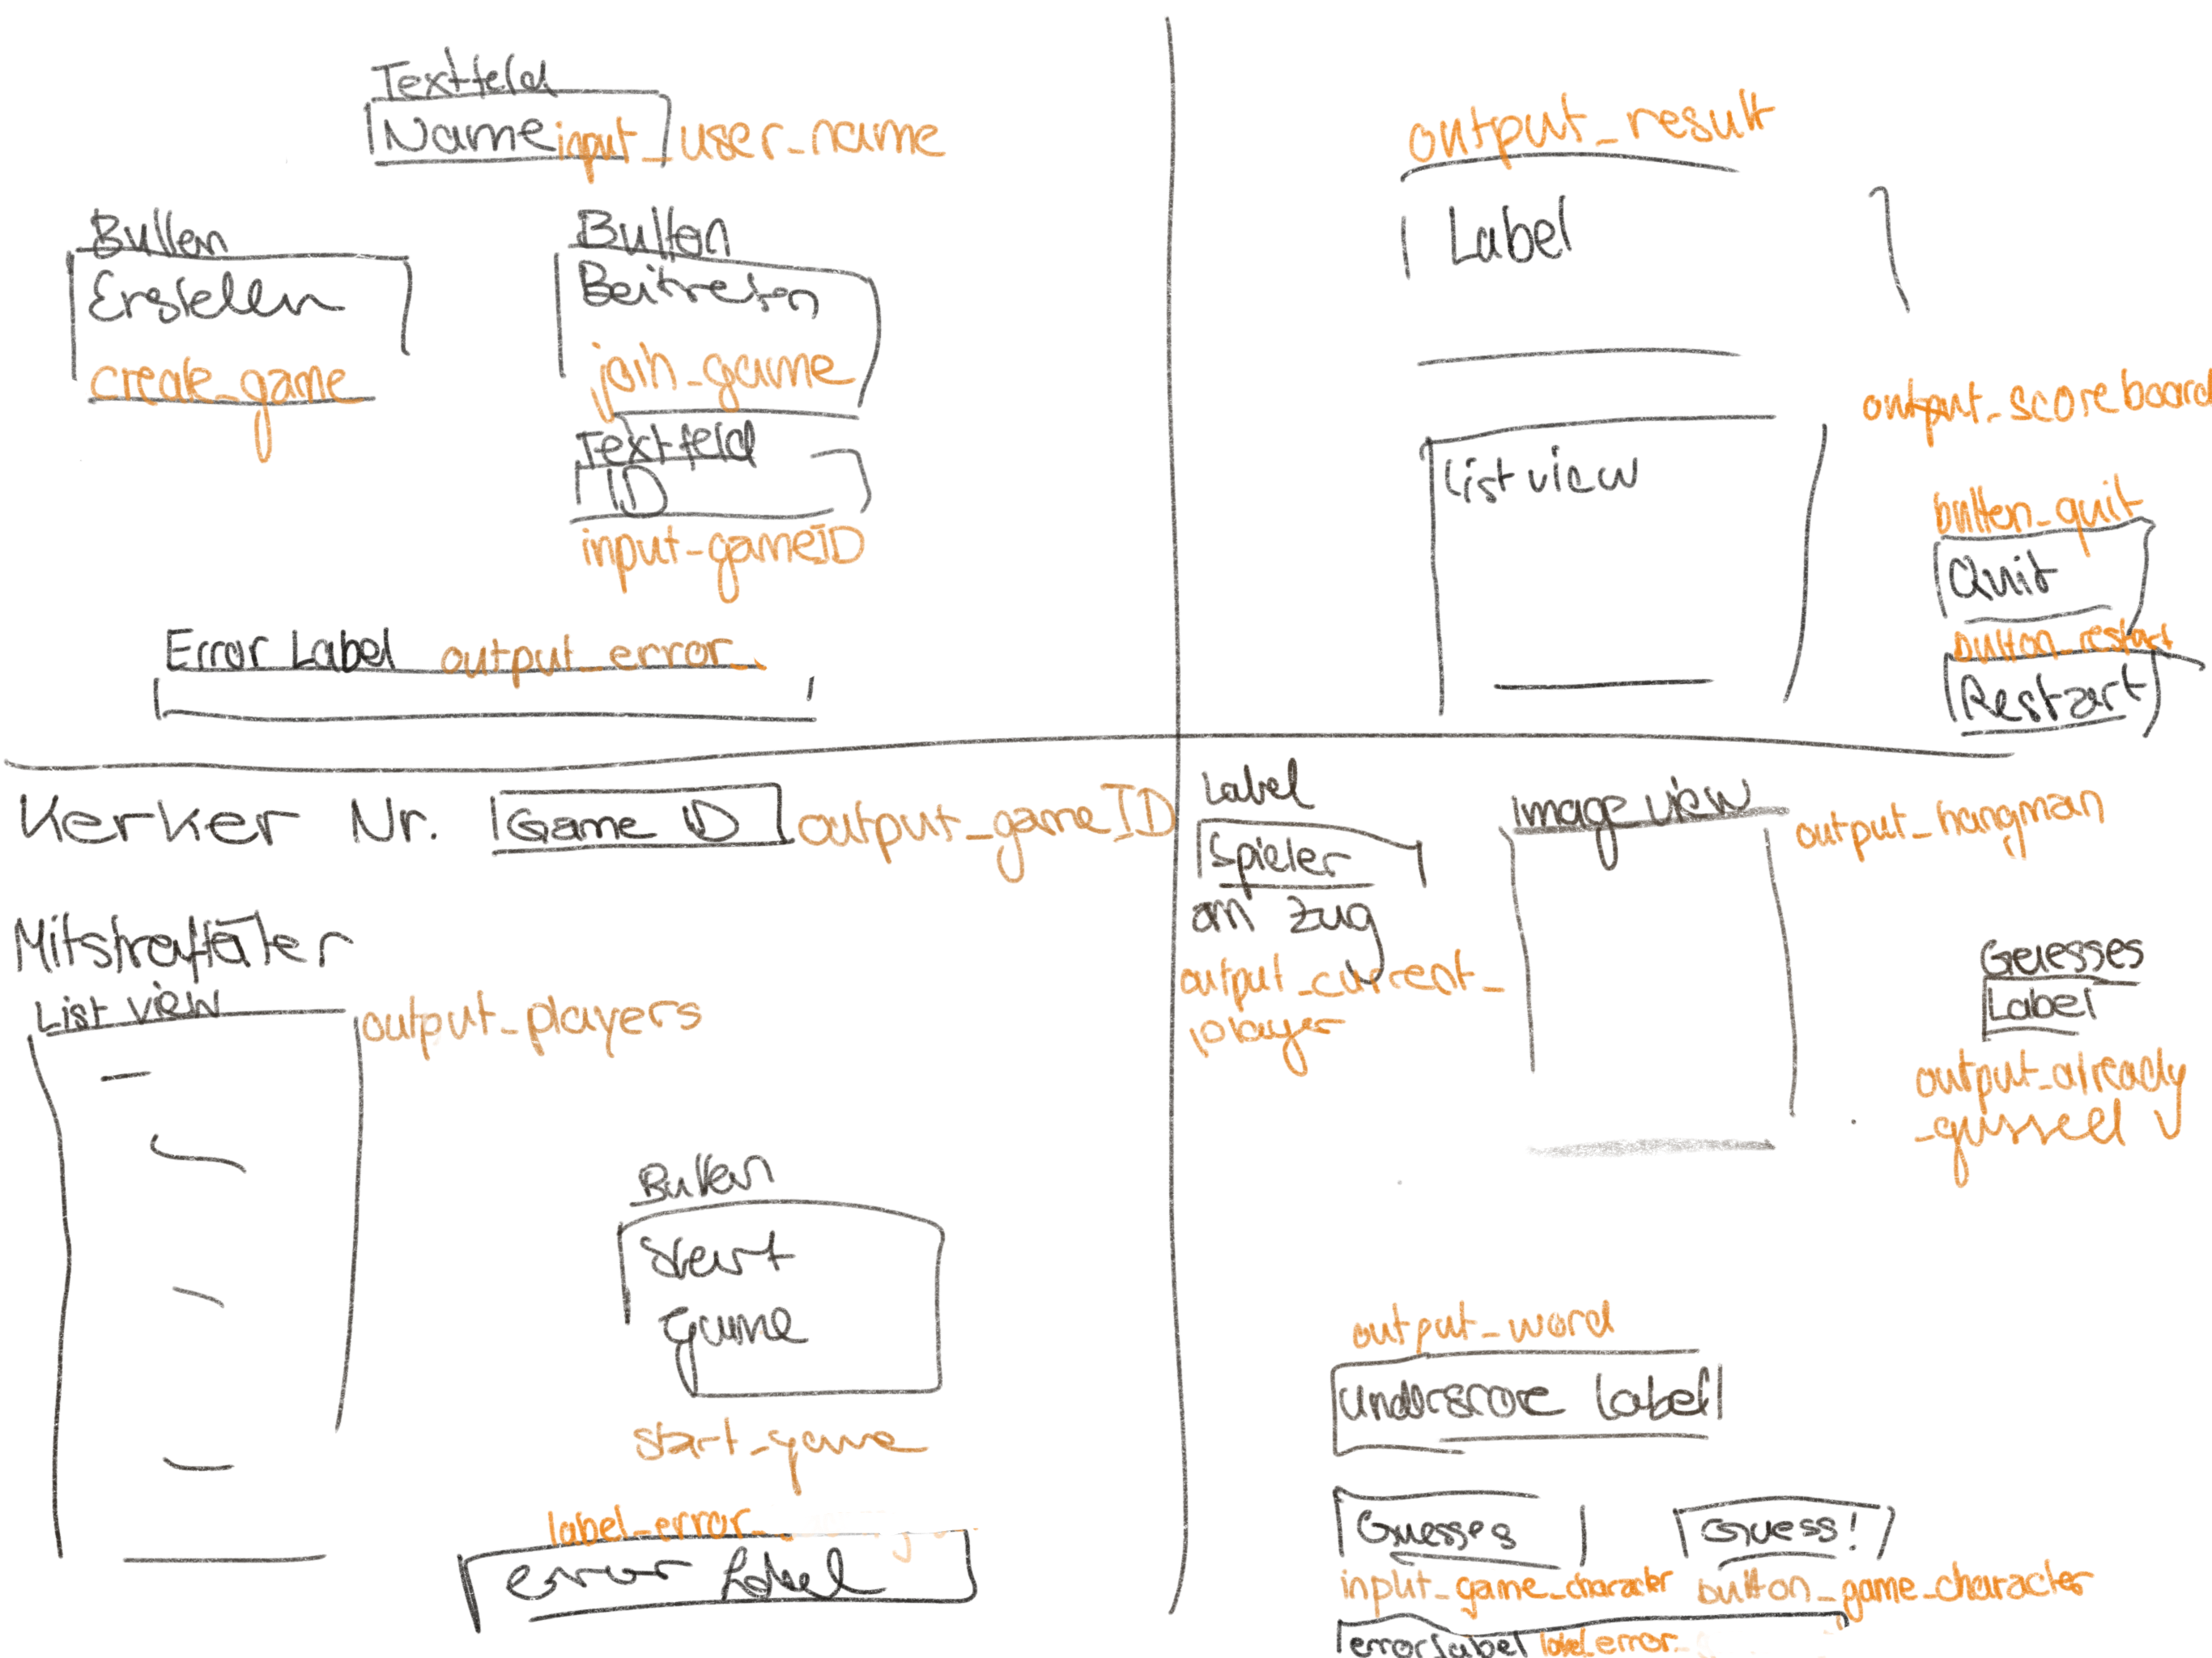 Textfeld
Name input_user_name
Button
Erstellen
create_game
Button
Beitreten
join_game
Textfeld
ID
input-gameID
Error Label output_error
output_result
Label
output_scoreboard
List view
button_quit
Quit
button_restart
Restart
Kerker Nr. Game ID output_gameID
Mitstraftäter
List view
output_players
Button
Start
game
start_game
label_error_
error Label
Label
Spieler
am Zug
output_current_
player
image view
output_hangman
Guesses
Label
output_already
_gussed
output_word
underscore label
Guesses
Guess!
input_game_character
button_game_character
error label label_error_